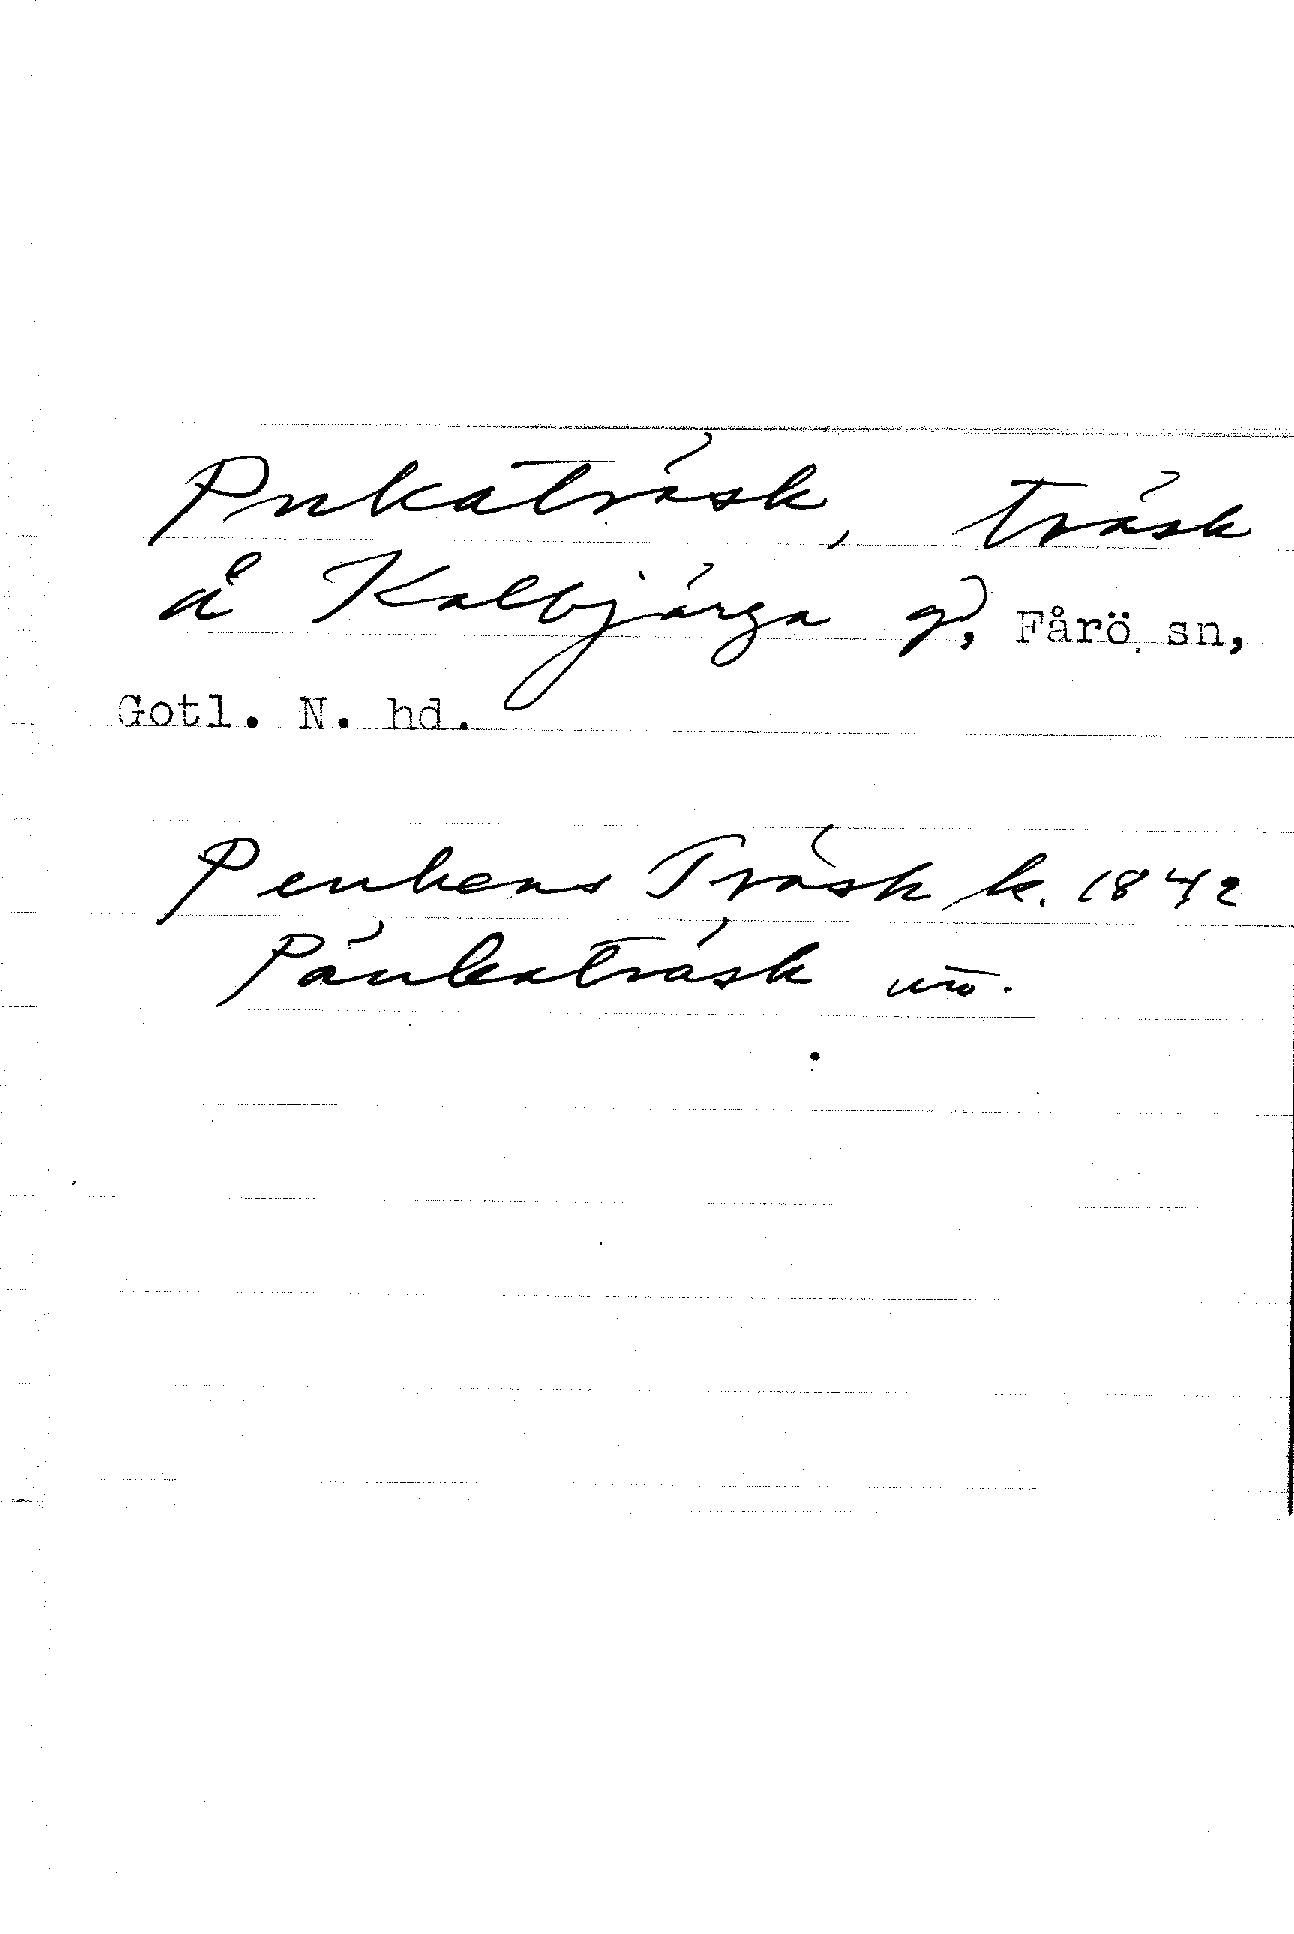 Pukaträsk, träsk
å Kalbjärga g), Fårö sn,
Gotl. N. hd.
Peukens Träsk k. 1842
Päukaträsk uto.